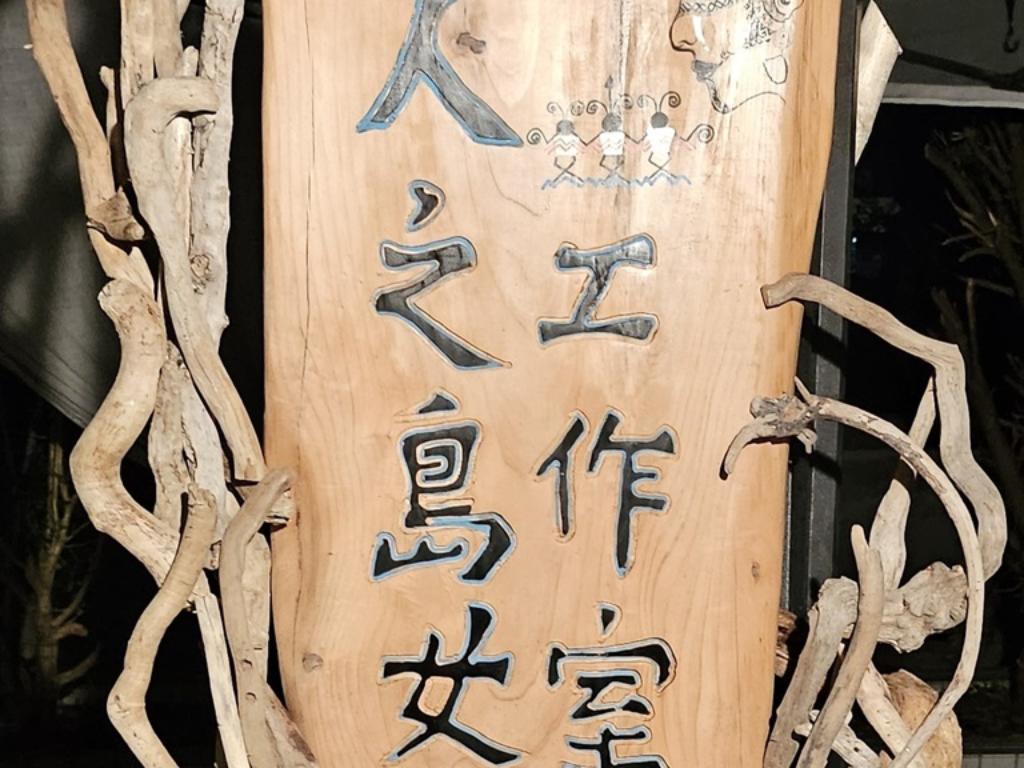 人之島女
工作室